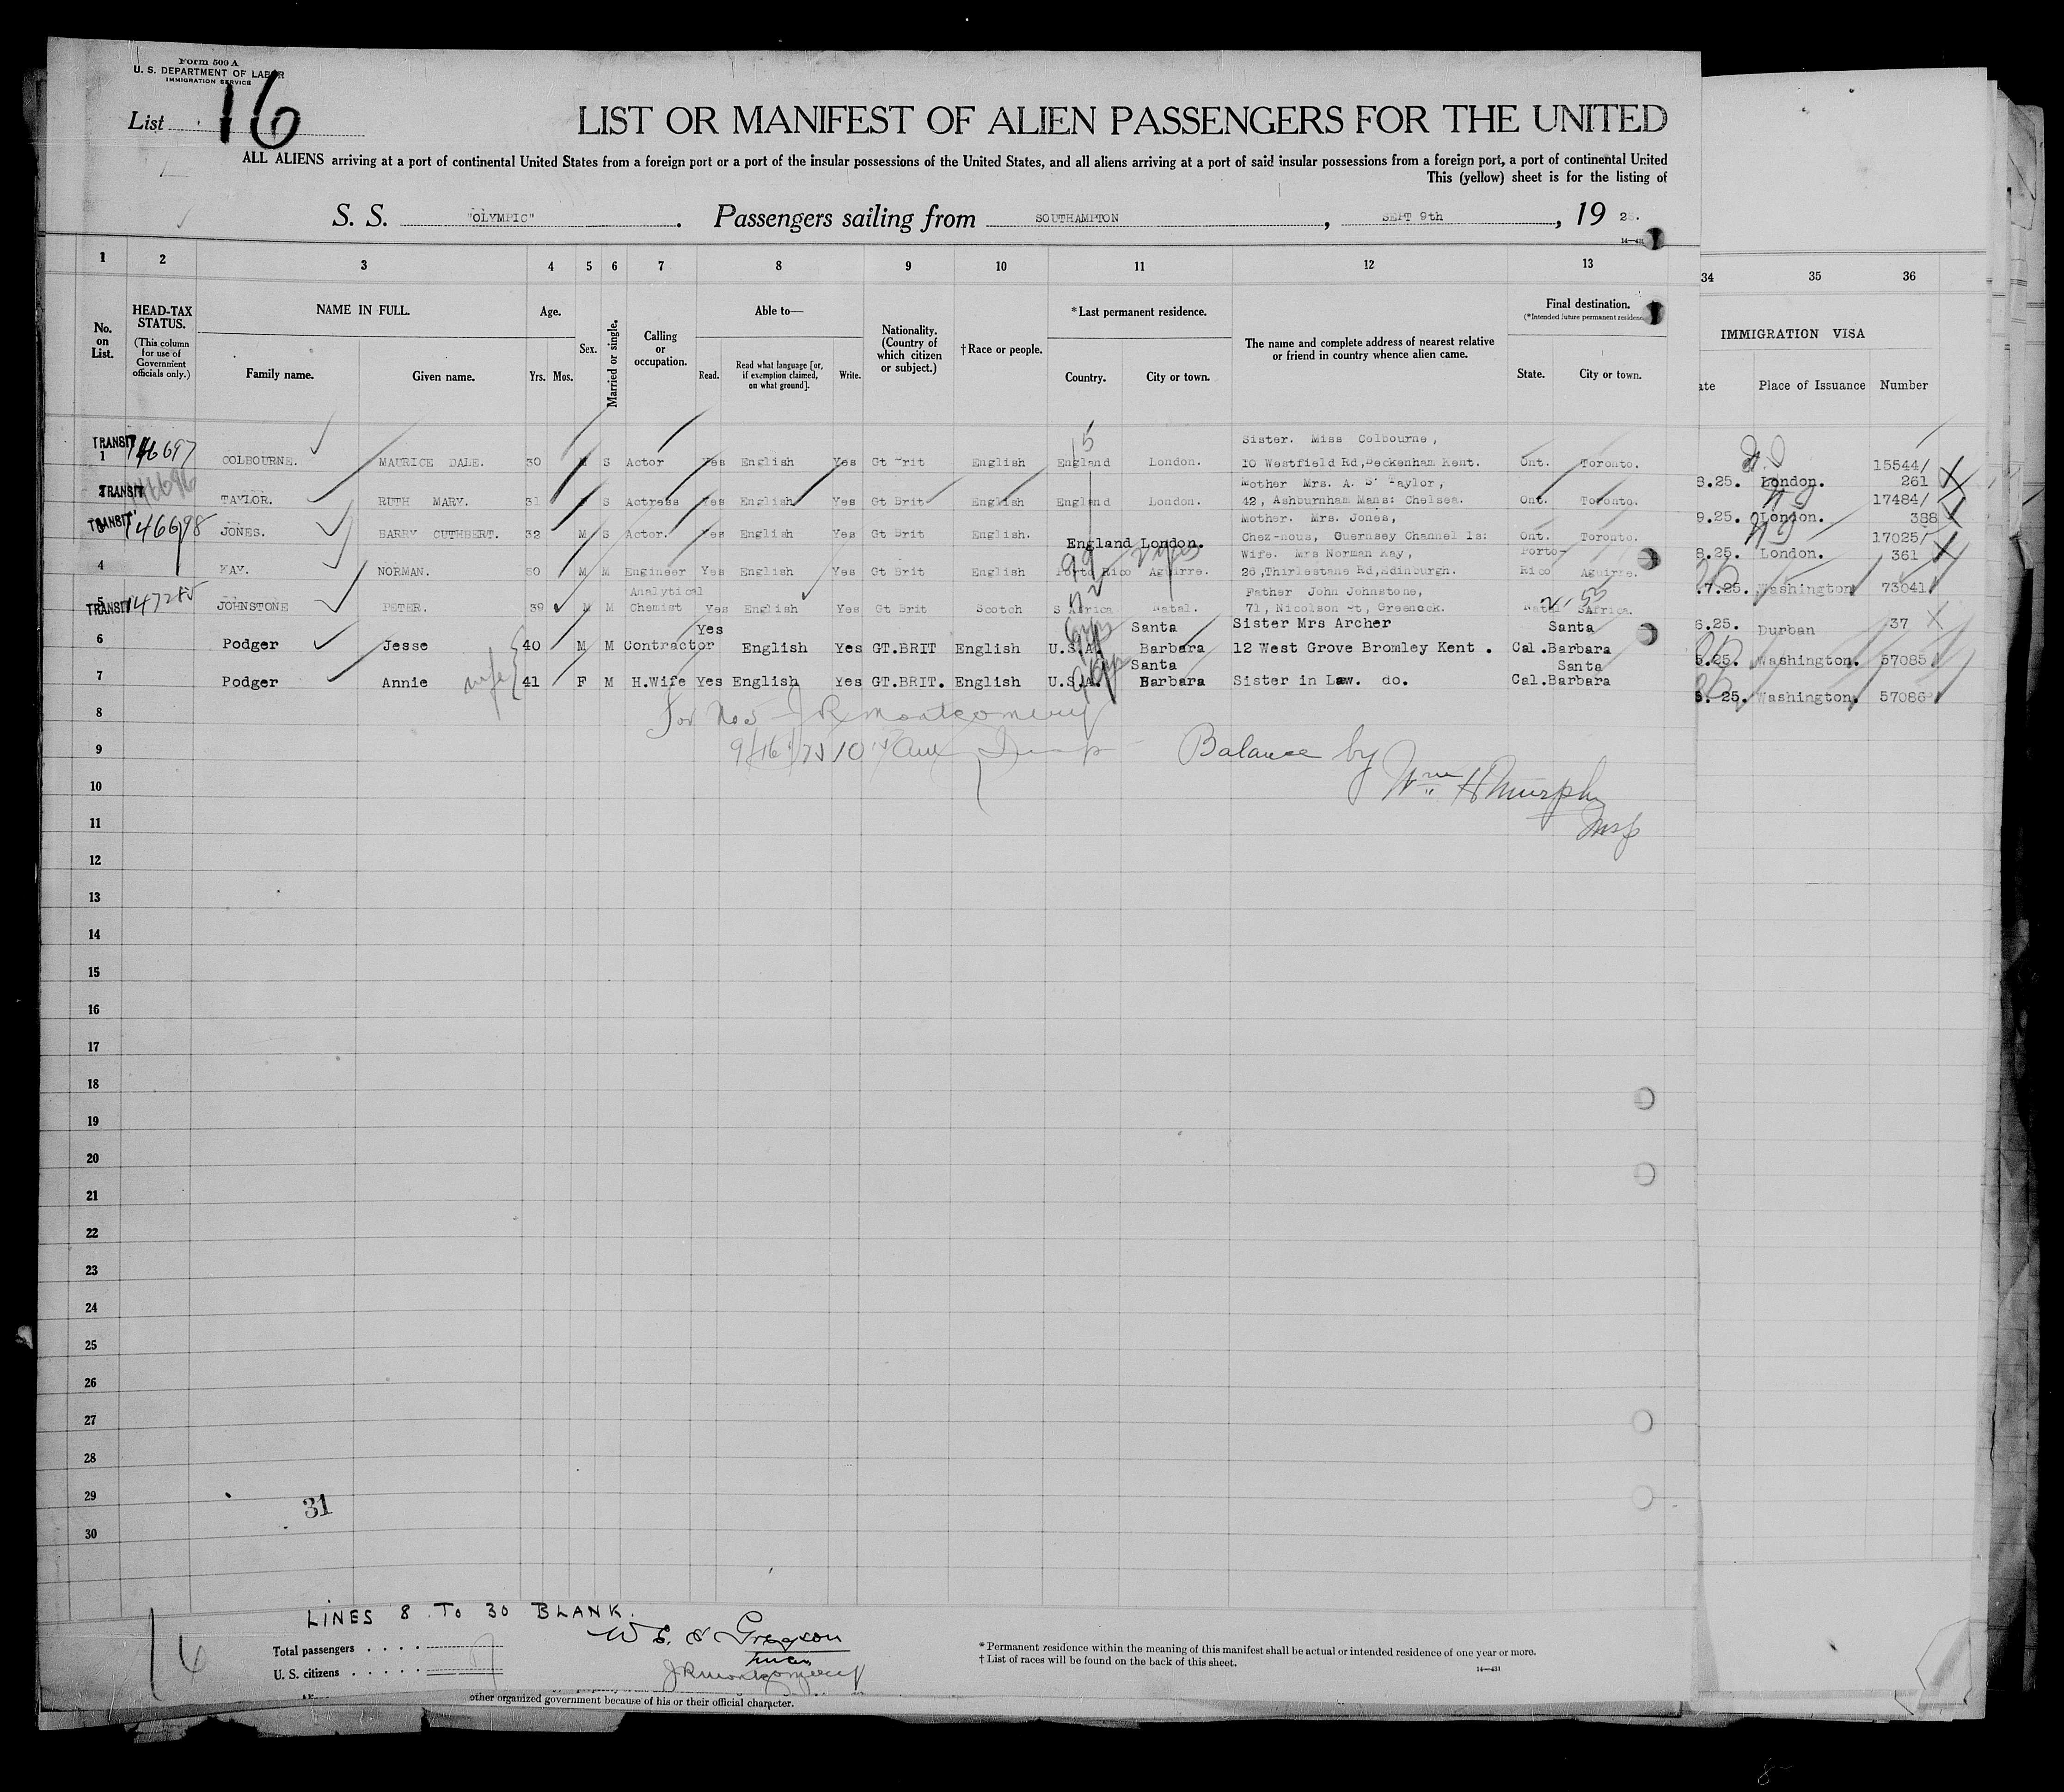 Form 500 A
U. S. DEPARTMENT OF LABOR
IMMIGRATION SERVICE
List 16
LIST OR MANIFEST OF ALIEN PASSENGERS FOR THE UNITED
ALL ALIENS arriving at a port of continental United States from a foreign port or a port of the insular possessions of the United States, and all aliens arriving at a port of said insular possessions from a foreign port, a port of continental United
This (yellow) sheet is for the listing of
S. S. "OLYMPIC". Passengers sailing from SOUTHAMPTON, SEPT 9th, 19 2
1 2 3 4 5 6 7 8 9 10 11 12 13 34 35 36
No. on List.
HEAD-TAX STATUS.
(This column for use of Government officials only.)
NAME IN FULL.
Family name. Given name.
Age.
Yrs. Mos.
Sex.
Married or single.
Calling or occupation.
Able to—
Read. Read what language [or, if exemption claimed, on what ground]. Write.
Nationality. (Country of which citizen or subject.)
†Race or people.
*Last permanent residence.
Country. City or town.
The name and complete address of nearest relative or friend in country whence alien came.
Final destination.
(*Intended future permanent residence
State. City or town.
IMMIGRATION VISA
ate Place of Issuance Number
15
TRANSIT 1 146697 COLBOURNE. MAURICE DALE. 30 M S Actor Yes English Yes Gt Brit English England London. Sister. Miss Colbourne,
10 Westfield Rd, Beckenham Kent. Ont. Toronto. 8.25. London. 15544/
261
TRANSIT 2 146696 TAYLOR. RUTH MARY. 31 S Actress Yes English Yes Gt Brit English England London. Mother Mrs. A. Taylor,
42, Ashburnham Mans: Chelsea. Ont. Toronto. 9.25. London. 17484/
388
TRANSIT 3 146698 JONES. BARRY CUTHBERT. 32 M S Actor. Yes English Yes Gt Brit English. England London. Mother. Mrs. Jones,
Chez-nous, Guernsey Channel Is: Ont. Toronto. 8.25. London. 17025/
361
4 KAY. NORMAN. 50 M M Engineer Yes English Yes Gt Brit English Porto Rico Aguirre. Wife. Mrs Norman Kay,
26, Thirlestane Rd, Edinburgh. Porto-Rico Aguirre. 7.25. Washington 73041
TRANSIT 5 147285 JOHNSTONE PETER. 39 M M Analytical Chemist Yes English Yes Gt Brit Scotch S Africa Natal. Father John Johnstone,
71, Nicolson St, Greenock. Natal SAfrica. 6.25. Durban 37
6 Podger Jesse 40 M M Contractor Yes English Yes GT.BRIT English U.S.A. Santa Barbara Sister Mrs Archer
12 West Grove Bromley Kent. Cal. Santa Barbara 5.25. Washington. 57085
7 Podger Annie wife 41 F M H.Wife Yes English Yes GT.BRIT. English U.S.A. Santa Barbara Sister in Law. do. Cal. Santa Barbara 5.25. Washington. 57086
8 For No 5 J R Montgomery
9 9/16/25 10 Balance by
10 Wm H Murphy
11 Insp
12
13
14
15
16
17
18
19
20
21
22
23
24
25
26
27
28
29
31
30
LINES 8 TO 30 BLANK.
16
Total passengers
U. S. citizens
J R Montgomery
* Permanent residence within the meaning of this manifest shall be actual or intended residence of one year or more.
† List of races will be found on the back of this sheet.
14—431
other organized government because of his or their official character.